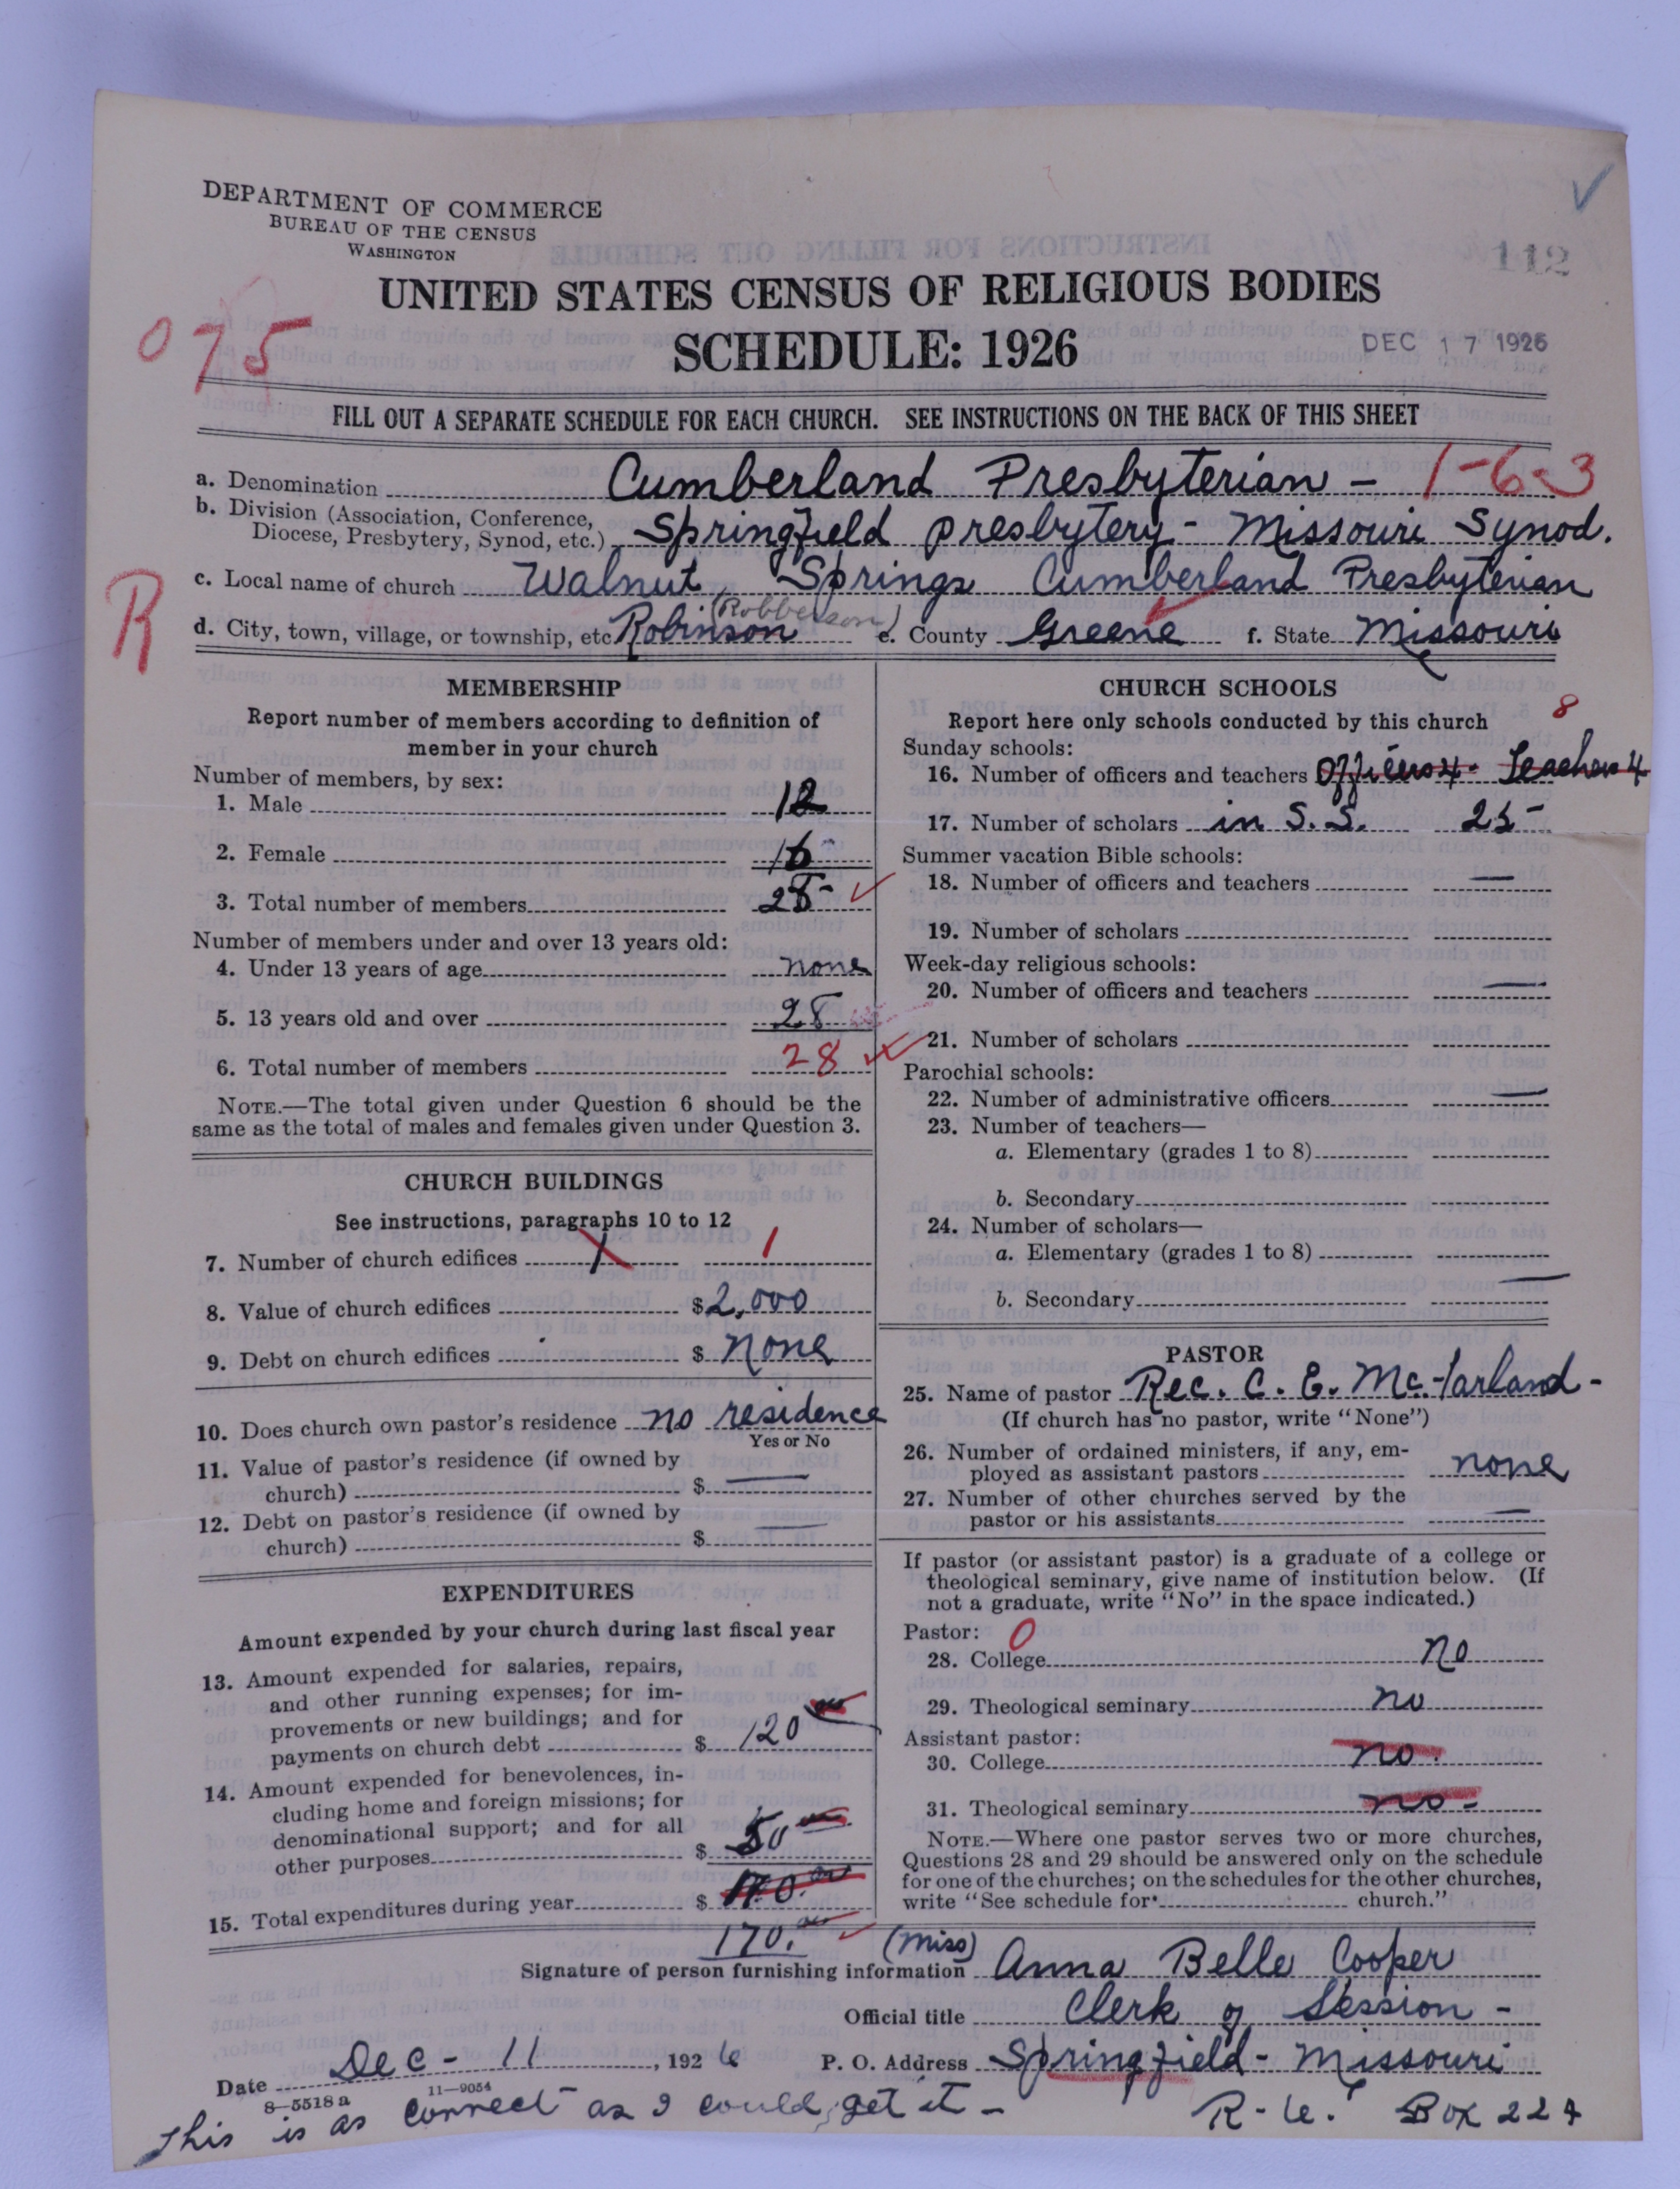 DEPARTMENT OF COMMERCE
BUREAU OF THE CENSUS
WASHINGTON
112
UNITED STATES CENSUS OF RELIGIOUS BODIES
075
SCHEDULE: 1926
DEC 17 1926
FILL OUT A SEPARATE SCHEDULE FOR EACH CHURCH. SEE INSTRUCTIONS ON THE BACK OF THIS SHEET
a. Denomination Cumberland Presbyterian - 1-6-3
b. Division (Association, Conference, Diocese, Presbytery, Synod, etc.) Springfield presbytery - Missouri Synod.
c. Local name of church Walnut Springs Cumberland Presbyterian
R
(Robberson)
d. City, town, village, or township, etc. Robinson e. County Greene f. State Missouri
MEMBERSHIP
Report number of members according to definition of
member in your church
Number of members, by sex:
1. Male 12
2. Female 16
3. Total number of members 28
Number of members under and over 13 years old:
4. Under 13 years of age none
5. 13 years old and over 28
6. Total number of members 28
NOTE.—The total given under Question 6 should be the
same as the total of males and females given under Question 3.
CHURCH BUILDINGS
See instructions, paragraphs 10 to 12
7. Number of church edifices 1 1
8. Value of church edifices $ 2,000
9. Debt on church edifices $ none
10. Does church own pastor's residence no residence
Yes or No
11. Value of pastor's residence (if owned by
church) $ —
12. Debt on pastor's residence (if owned by
church) $ —
EXPENDITURES
Amount expended by your church during last fiscal year
13. Amount expended for salaries, repairs,
and other running expenses; for im-
provements or new buildings; and for
payments on church debt $ 120 00
14. Amount expended for benevolences, in-
cluding home and foreign missions; for
denominational support; and for all
other purposes $ 50 00
15. Total expenditures during year $ 170.00
170.00
CHURCH SCHOOLS
Report here only schools conducted by this church
8
Sunday schools:
16. Number of officers and teachers Officers 4. Teachers 4
17. Number of scholars in S.S. 25
Summer vacation Bible schools:
18. Number of officers and teachers —
19. Number of scholars
Week-day religious schools:
20. Number of officers and teachers —
21. Number of scholars
Parochial schools:
22. Number of administrative officers —
23. Number of teachers—
a. Elementary (grades 1 to 8)
b. Secondary
24. Number of scholars—
a. Elementary (grades 1 to 8)
b. Secondary —
PASTOR
25. Name of pastor Rec. C. E. McFarland -
(If church has no pastor, write "None")
26. Number of ordained ministers, if any, em-
ployed as assistant pastors none
27. Number of other churches served by the
pastor or his assistants —
If pastor (or assistant pastor) is a graduate of a college or
theological seminary, give name of institution below. (If
not a graduate, write "No" in the space indicated.)
Pastor: 0
28. College no
29. Theological seminary no
Assistant pastor:
30. College no.
31. Theological seminary no -
NOTE.—Where one pastor serves two or more churches,
Questions 28 and 29 should be answered only on the schedule
for one of the churches; on the schedules for the other churches,
write "See schedule for church."
Signature of person furnishing information (Miss) Anna Belle Cooper
Official title Clerk of Session -
Date Dec - 11, 1926 P. O. Address Springfield - Missouri
8-5518 a 11-9054
This is as correct as I could get it - R-6. Box 224